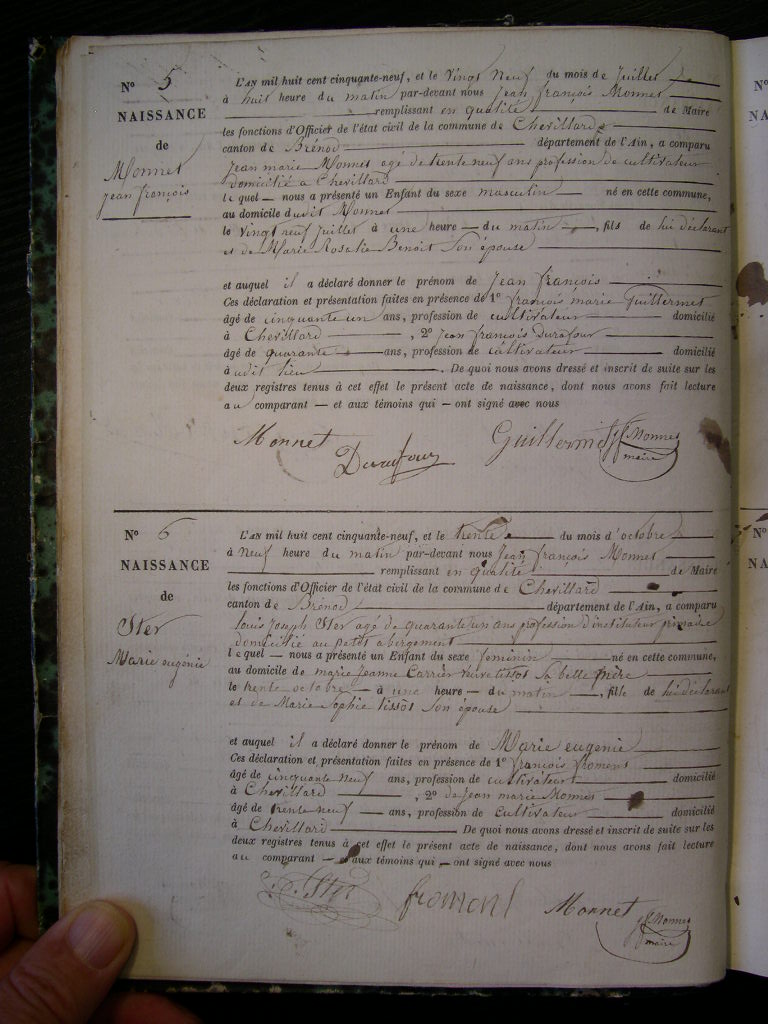 N° 5
NAISSANCE
de
Monnet
jean françois
L'AN mil huit cent cinquante-neuf, et le vingt neuf du mois de juillet
à huit heure du matin par-devant nous jean françois Monnet
remplissant en qualité de Maire
les fonctions d'Officier de l'état civil de la commune de Chevillard
canton de Brénod département de l'Ain, a comparu
jean marie Monnet agé de trente neuf ans profession de cultivateur
domicilié a Chevillard
le quel nous a présenté un Enfant du sexe masculin né en cette commune,
au domicile dudit Monnet
le vingt neuf juillet à une heure du matin, fils de lui déclarant
et de Marie Rosalie Benoit son épouse
et auquel il a déclaré donner le prénom de Jean françois
Ces déclaration et présentation faites en présence de 1° françois marie Guillermet
âgé de cinquante un ans, profession de cultivateur domicilié
à Chevillard, 2° jean françois Durafour
âgé de quarante ans, profession de cultivateur domicilié
à udit lieu. De quoi nous avons dressé et inscrit de suite sur les
deux registres tenus à cet effet le présent acte de naissance, dont nous avons fait lecture
au comparant et aux témoins qui ont signé avec nous
Monnet Guillermet Monnet
Durafour maire
N° 6
NAISSANCE
de
Ster
Marie eugénie
L'AN mil huit cent cinquante-neuf, et le trente du mois d'octobre
à neuf heure du matin par-devant nous jean françois Monnet
remplissant en qualité de Maire
les fonctions d'Officier de l'état civil de la commune de Chevillard
canton de Brénod département de l'Ain, a comparu
louis joseph Ster agé de quarante un ans profession d'instituteur primaire
domicilié au petit abergement
le quel nous a présenté un Enfant du sexe feminin né en cette commune,
au domicile de marie jeanne Carrier veuve tissot sa belle mère
le trente octobre à une heure du matin, fille de lui déclarant
et de Marie Sophie tissot son épouse
et auquel il a déclaré donner le prénom de Marie eugenie
Ces déclaration et présentation faites en présence de 1° françois froment
âgé de cinquante neuf ans, profession de cultivateur domicilié
à Chevillard, 2° de jean marie Monnet
âgé de trente neuf ans, profession de cultivateur domicilié
à Chevillard De quoi nous avons dressé et inscrit de suite sur les
deux registres tenus à cet effet le présent acte de naissance, dont nous avons fait lecture
au comparant et aux témoins qui ont signé avec nous
Ster froment Monnet Monnet
maire
N°
NA
N°
NA